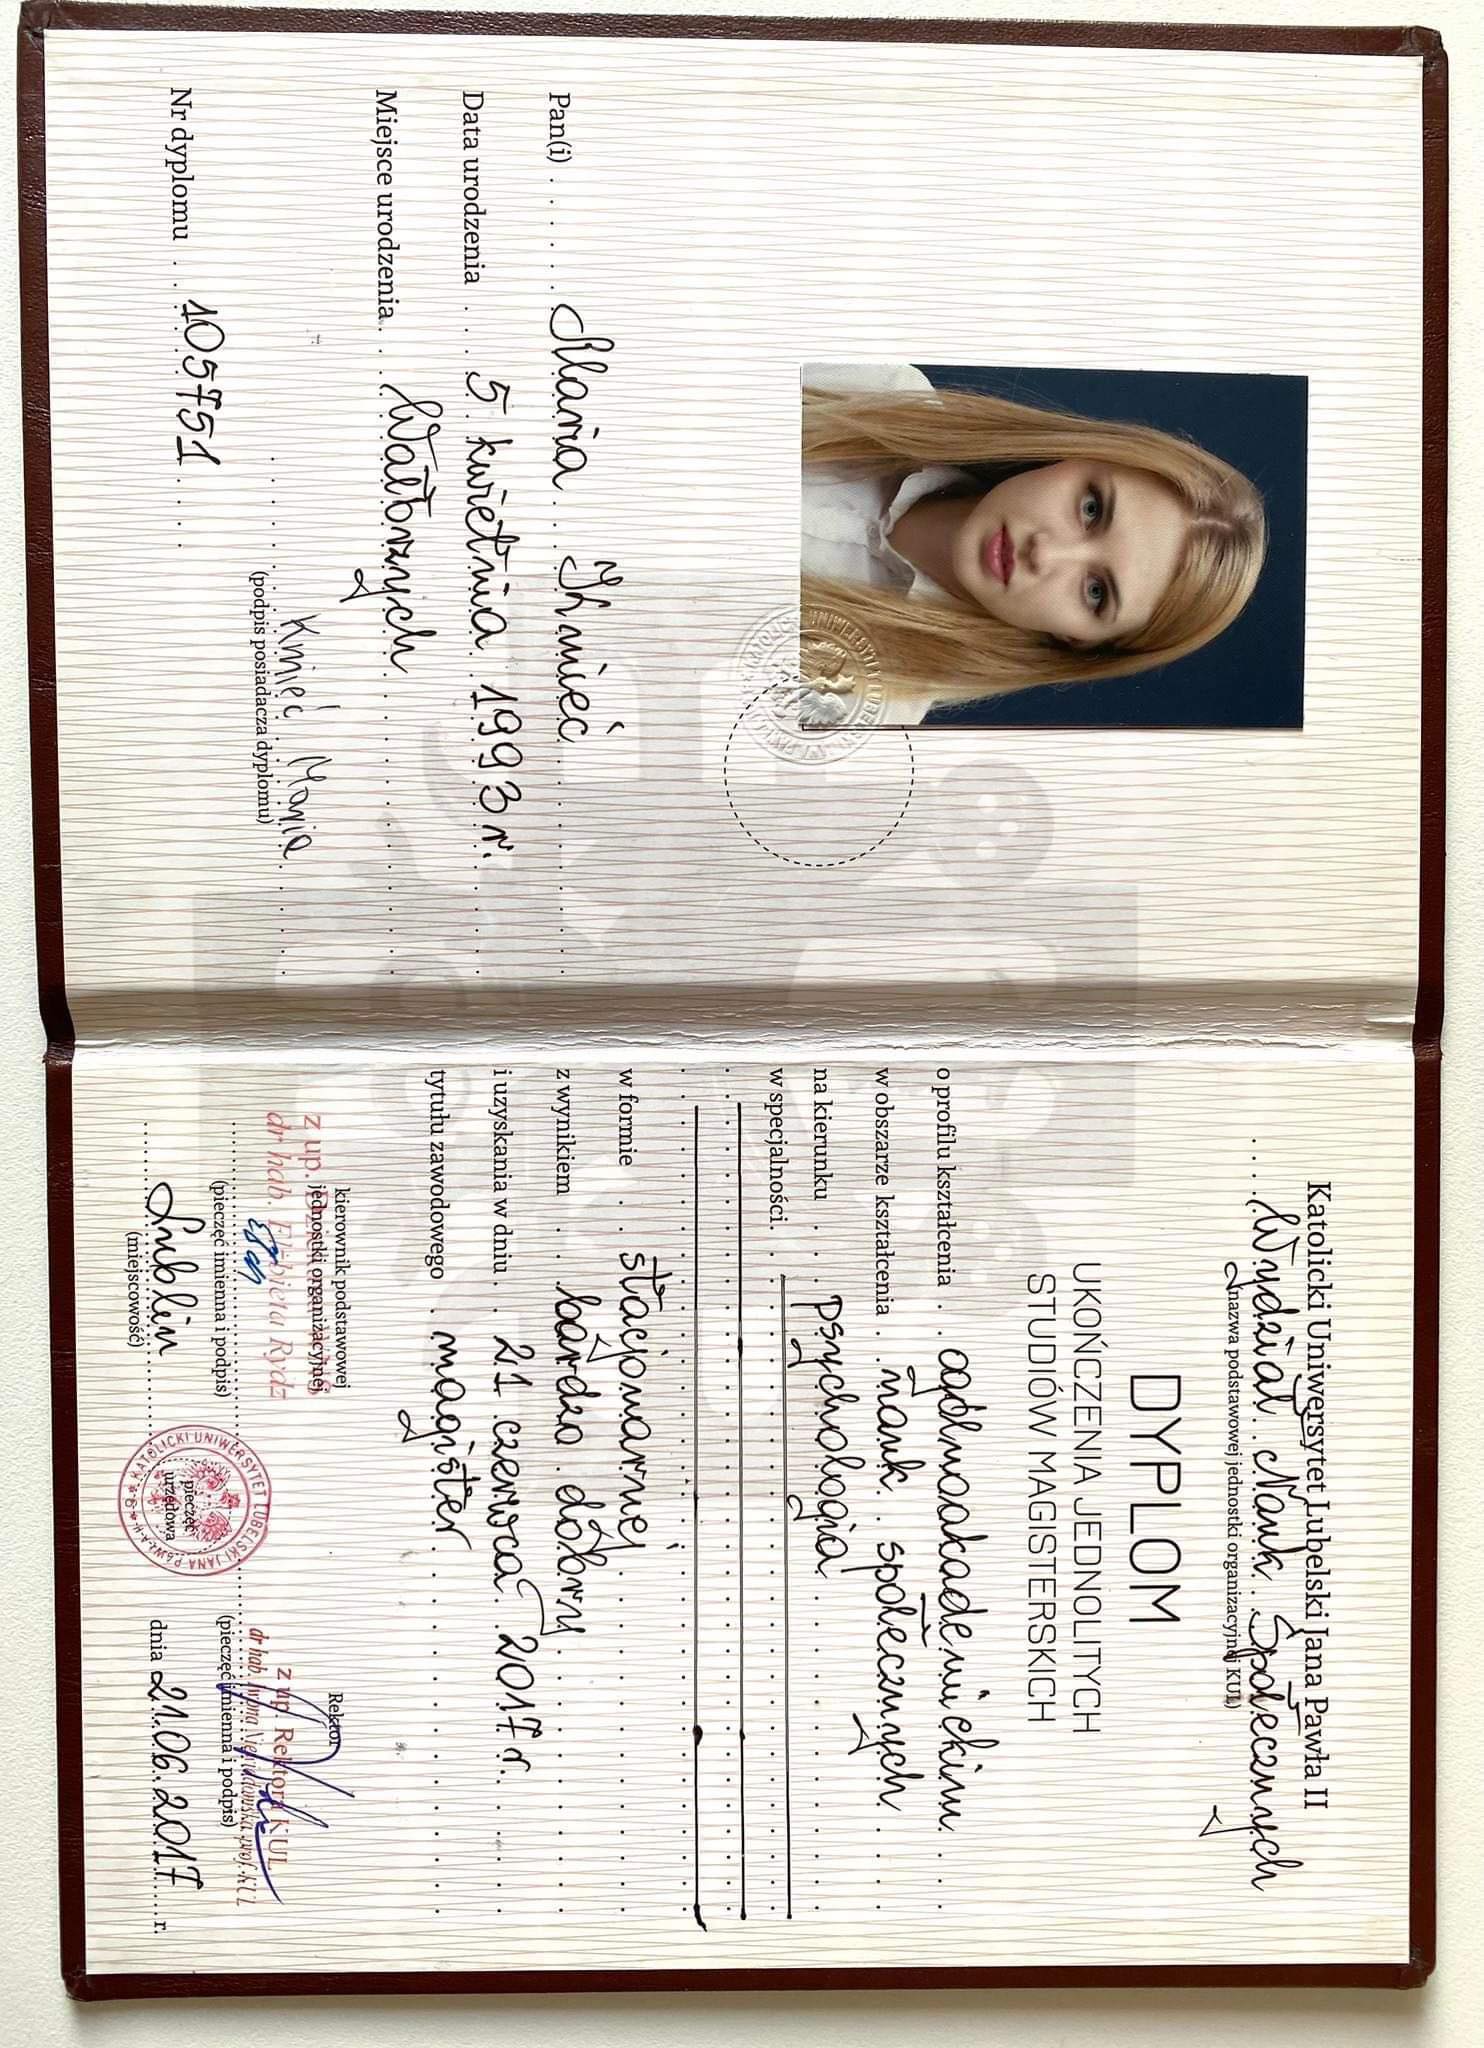 Pan(i) Maria Kmieć
Data urodzenia 5 kwietnia 1993 r.
Miejsce urodzenia Wałbrzych
Kmieć Maria
(podpis posiadacza dyplomu)
Nr dyplomu 105751
Katolicki Uniwersytet Lubelski Jana Pawła II
Wydział Nauk Społecznych
(nazwa podstawowej jednostki organizacyjnej KUL)
DYPLOM
UKOŃCZENIA JEDNOLITYCH
STUDIÓW MAGISTERSKICH
o profilu kształcenia ogólnoakademickim
w obszarze kształcenia nauk społecznych
na kierunku psychologia
w specjalności
w formie stacjonarnej
z wynikiem bardzo dobry
i uzyskania w dniu 21 czerwca 2017 r.
tytułu zawodowego magister
kierownik podstawowej
jednostki organizacyjnej
z up.
dr hab. Elżbieta Rydz
(pieczęć imienna i podpis)
Rektor
z up. Rektora KUL
dr hab. Iwona prof. KUL
(pieczęć imienna i podpis)
KATOLICKI UNIWERSYTET LUBELSKI JANA PAWŁA II
pieczęć
urzędowa
Lublin dnia 21.06.2017 r.
(miejscowość)